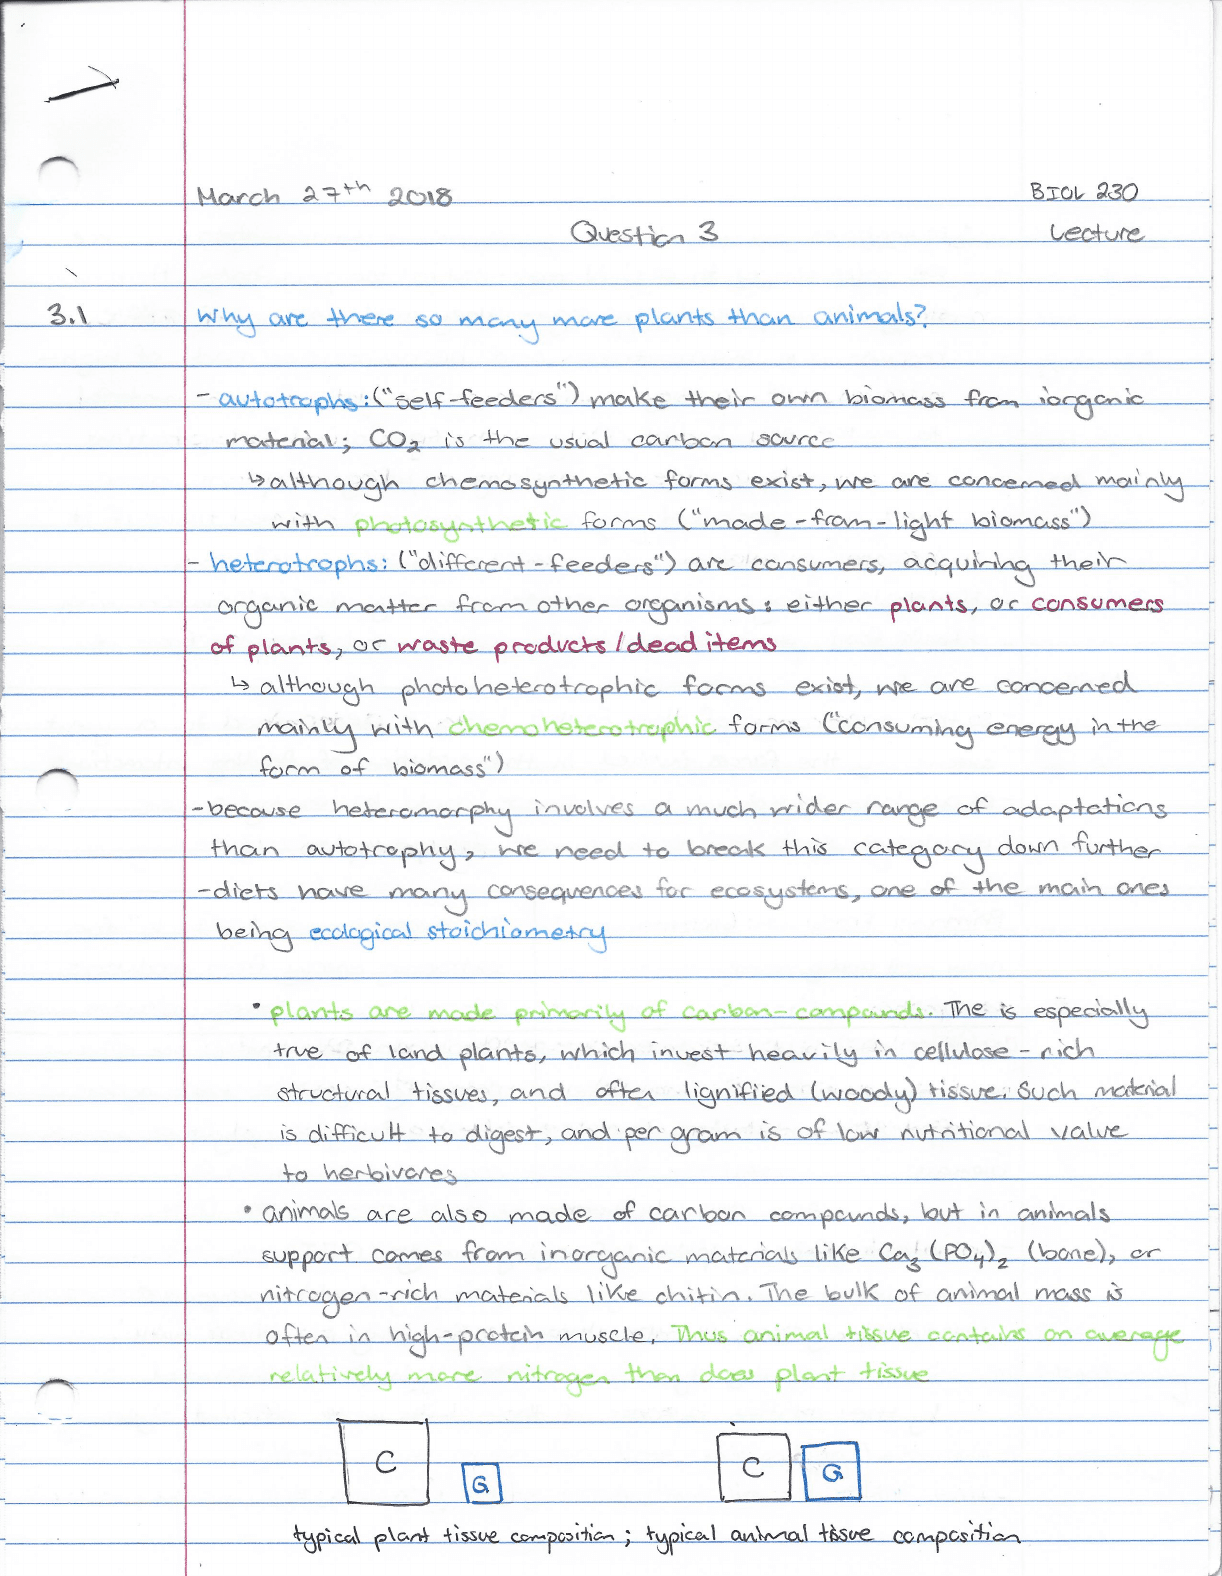 March 27th 2018 BIOL 230
Question 3 Lecture
3.1 Why are there so many more plants than animals?
- autotrophs: ("self-feeders") make their own biomass from iorganic
material; CO2 is the usual carbon source
↳ although chemosynthetic forms exist, we are concerned mainly
with photosynthetic forms ("made-from-light biomass")
- heterotrophs: ("different-feeders") are consumers, acquiring their
organic matter from other organisms: either plants, or consumers
of plants, or waste products/dead items
↳ although photoheterotrophic forms exist, we are concerned
mainly with chemoheterotrophic forms ("consuming energy in the
form of biomass")
- because heteromorphy involves a much wider range of adaptations
than autotrophy, we need to break this category down further
- diets have many consequences for ecosystems, one of the main ones
being ecological stoichiometry
• plants are made primarily of carbon-compounds. The is especially
true of land plants, which invest heavily in cellulose-rich
structural tissues, and often lignified (woody) tissue. Such material
is difficult to digest, and per gram is of low nutritional value
to herbivores
• animals are also made of carbon compounds, but in animals
support comes from inorganic materials like Ca3(PO4)2 (bone), or
nitrogen-rich materials like chitin. The bulk of animal mass is
often in high-protein muscle. Thus animal tissue contains on average
relatively more nitrogen than does plant tissue
C G C G
typical plant tissue composition; typical animal tissue composition